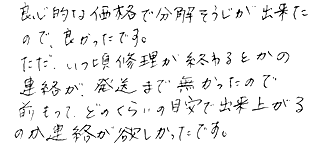 良心的な価格で分解そうじが出来た
ので、良かったです。
ただ、いつ頃修理が終わるとかの
連絡が、発送まで無かったので
前もって、どのくらいの目安で出来上がる
のか連絡が欲しかったです。